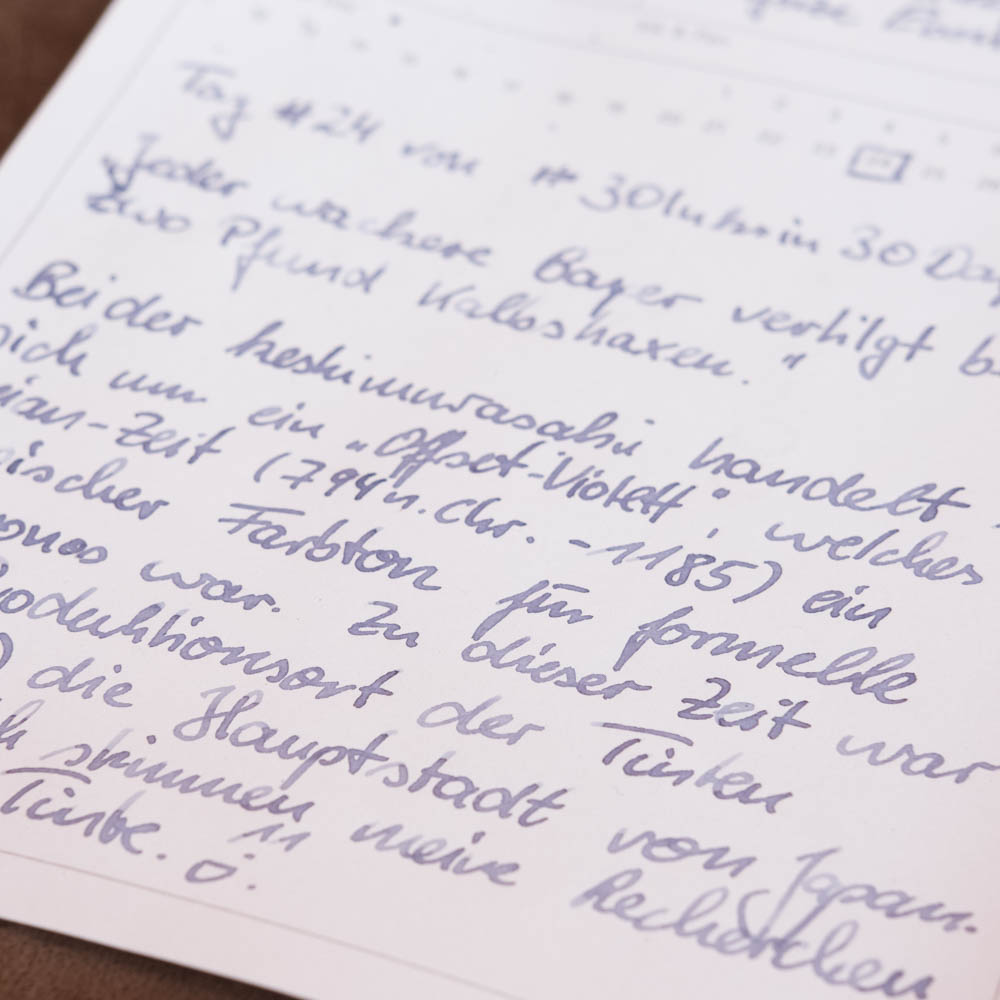 Tag #24 von #30Inksin 30 Day
„Jeder wackere Bayer vertilgt b
zwo Pfund Kalbshaxen."
Bei der keshimurasaki handelt
sich um ein „Offset-Violett", welches
ian-Zeit (794 n. Chr. - 1185) ein
ischer Farbton für formelle
onos war. Zu dieser Zeit war
oduktionsort der Tinten
) die Hauptstadt von Japan.
stimmen meine Recherchen
Tinte.